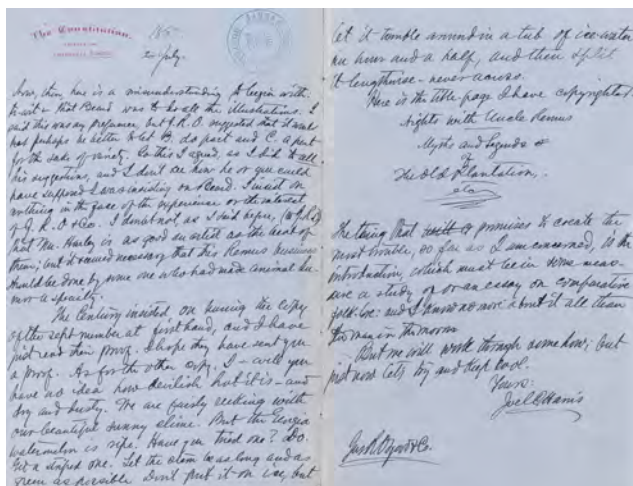 The Constitution,
July.
Now, then, here is a misunderstanding to begin with:
to-wit = that Beard was to do all the illustrations. I
said this was my preference, but J. R. O. suggested that it would
perhaps be better to let B. do part and C. a part
for the sake of variety. To this I agreed, as I did to all
his suggestions, and I don't see how he or you could
have supposed I was insisting on Beard. I insist on
nothing in the face of the experience or the interest
of J. R. O & Co. I doubt not, as I said before,
that Mr. is as good an artist as the best of
them; but it seemed necessary that this Remus business
should be done by some one who had made animal hu-
mor a specialty.
The Century insisted on having the copy
of the Sept number at first hand, and I have
just read their proof. I hope they have sent you
a proof. As for the other copy, I — well you
have no idea how devilish hot it is — and
dry and dusty. We are fairly reeking with
our beautiful sunny clime. But the Georgia
watermelon is ripe. Have you tried one? Do.
Get a striped one. Let the stem be as long and as
green as possible. Don't put it on ice, but
let it tumble around in a tub of ice-water
an hour and a half, and then split
it lengthwise — never across.
Here is the title-page I have copyrighted
Nights with Uncle Remus
Myths and Legends
of
The Old Plantation.
etc
The thing that promises to create the
most trouble, so far as I am concerned, is the
introduction, which must be in some meas-
ure a study of or an essay on comparative
folk-lore: and I know no more about it all than
the man in the moon.
But we will work through somehow; but
just now let's try and keep cool.
Yours:
Joel C Harris
Jas R Osgood & Co.